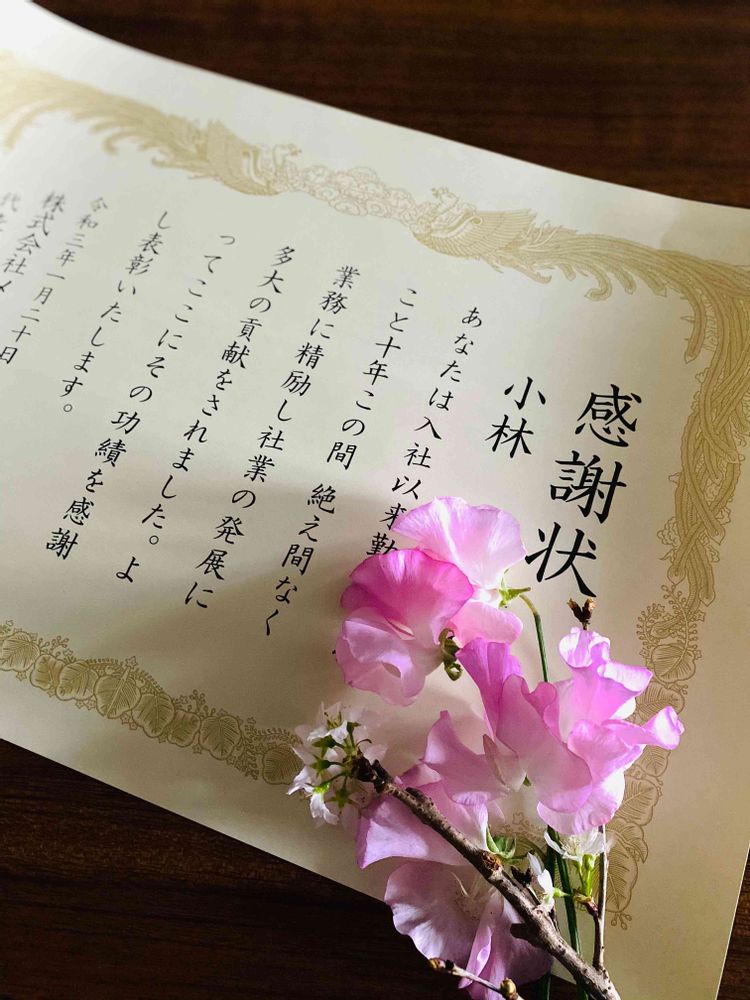 感謝状
小林
あなたは入社以来勤
こと十年この間 絶え間なく
業務に精励し社業の発展に
多大の貢献をされました。よ
ってここにその功績を感謝
し表彰いたします。
令和三年一月二十日
株式会社メ
代